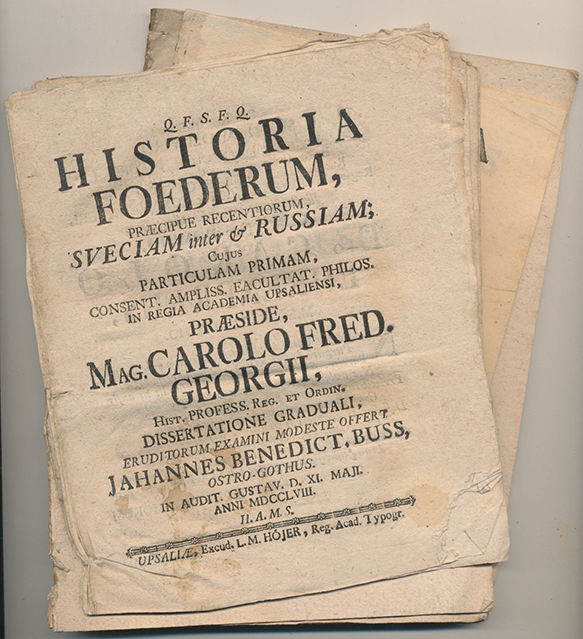 Q. F. S. F. Q.
HISTORIA
FOEDERUM,
PRÆCIPUE RECENTIORUM,
SVECIAM inter & RUSSIAM;
CUJUS
PARTICULAM PRIMAM,
CONSENT. AMPLISS. EACULTAT. PHILOS.
IN REGIA ACADEMIA UPSALIENSI,
PRÆSIDE,
MAG. CAROLO FRED.
GEORGII,
HIST. PROFESS. REG. ET ORDIN.
DISSERTATIONE GRADUALI,
ERUDITORUM EXAMINI MODESTE OFFERT
JAHANNES BENEDICT. BUSS,
OSTRO-GOTHUS.
IN AUDIT. GUSTAV. D. XI. MAJI.
ANNI MDCCLVIII.
H. A. M. S.
UPSALIÆ, Excud. L. M. HÖJER, Reg. Acad. Typogr.